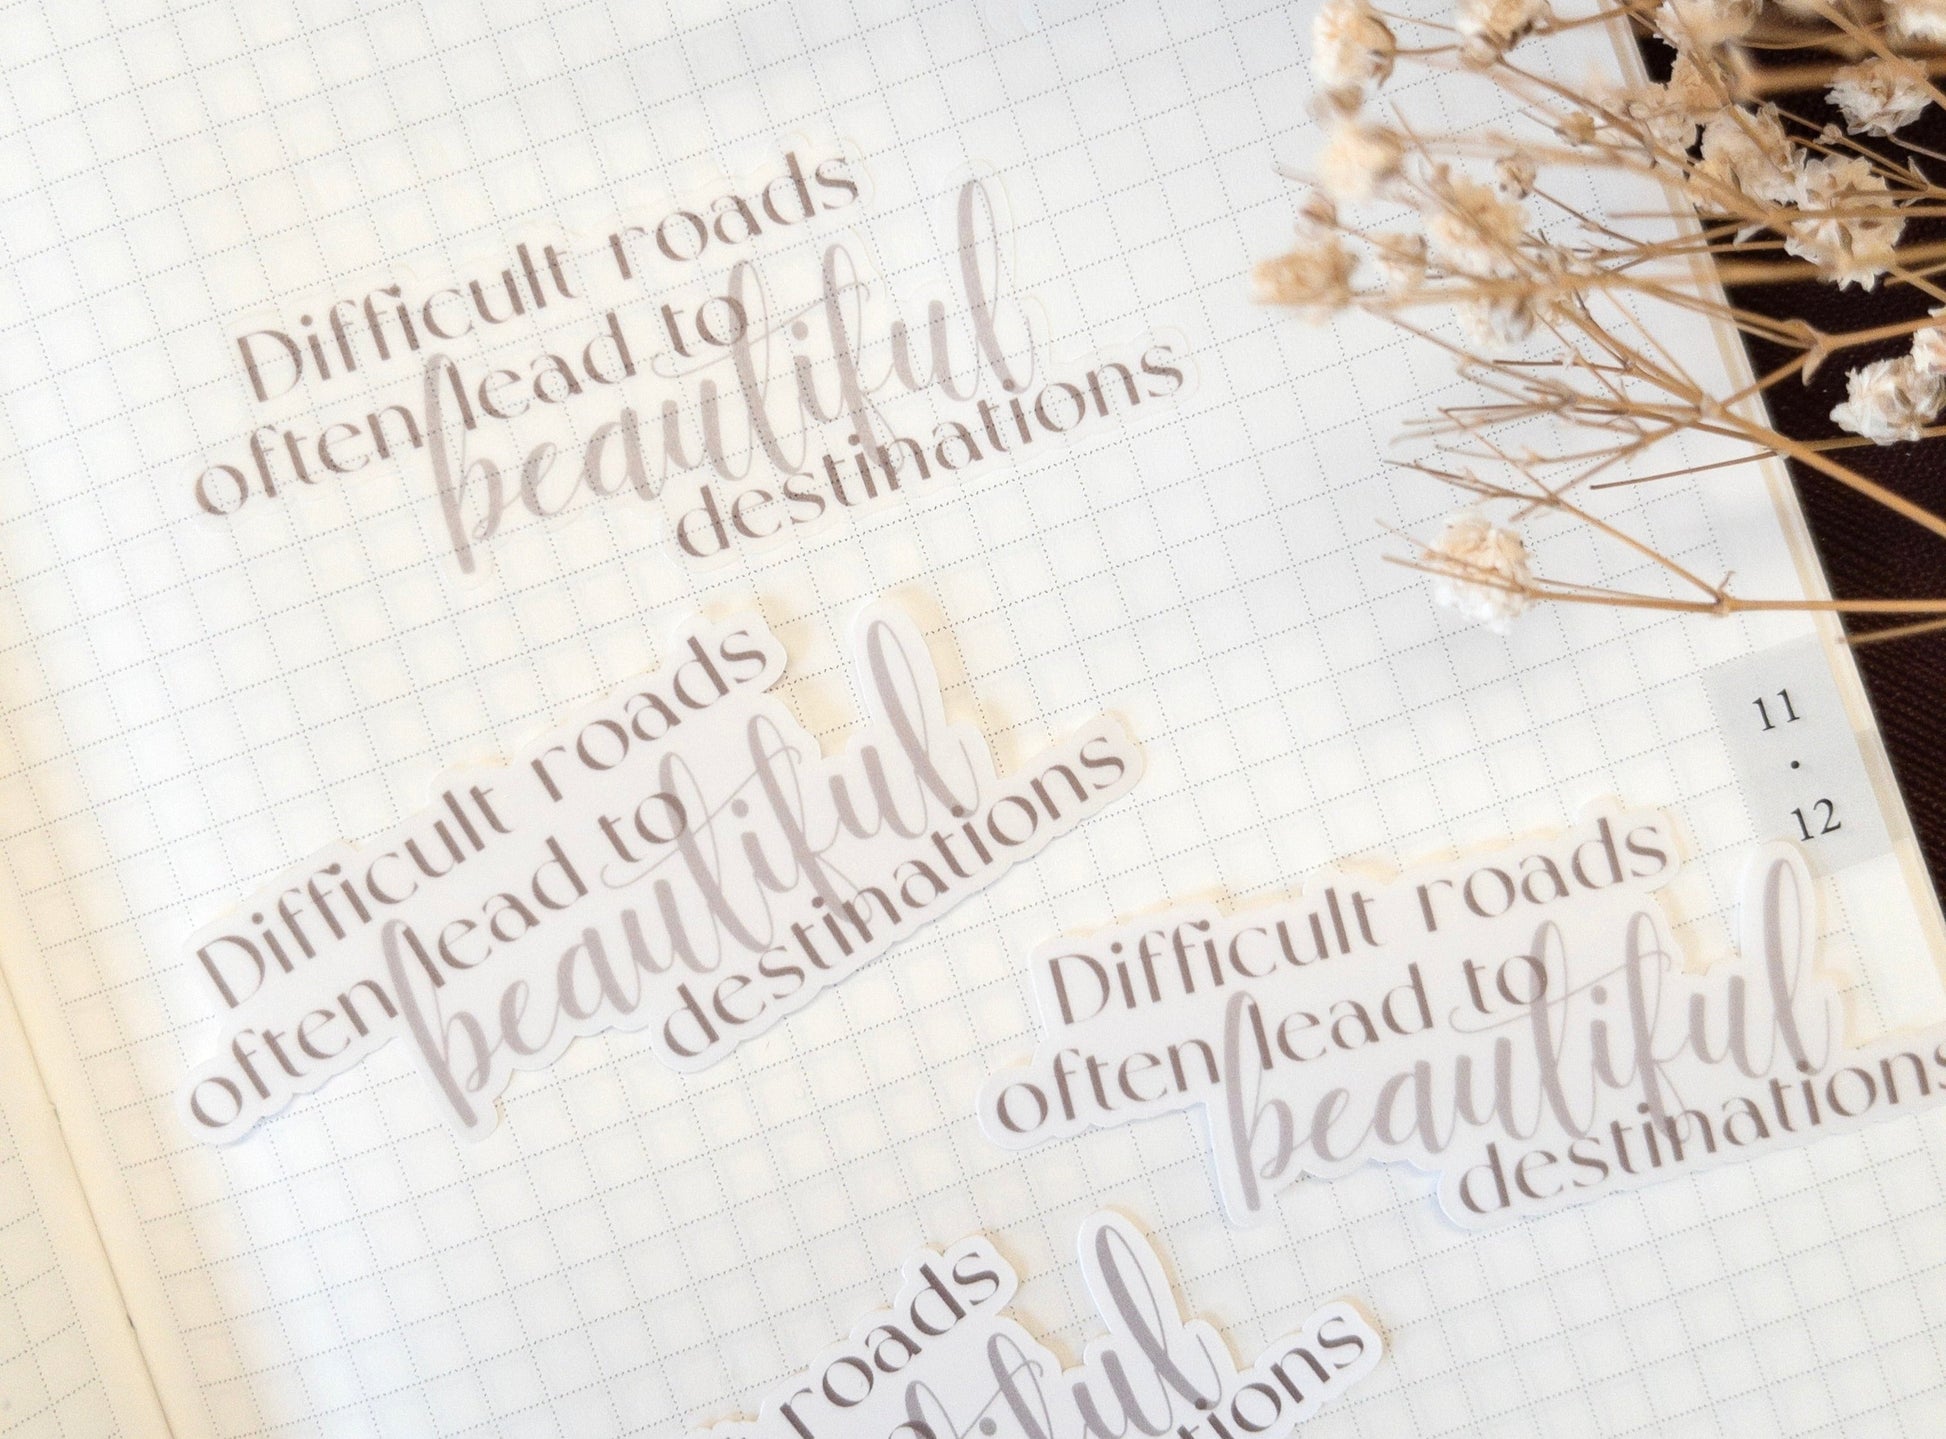 Difficult roads
often lead to
beautiful
destinations
Difficult roads
often lead to
beautiful
destinations
11
·
12
Difficult roads
often lead to
beautiful
destinations
roads
tiful
tions